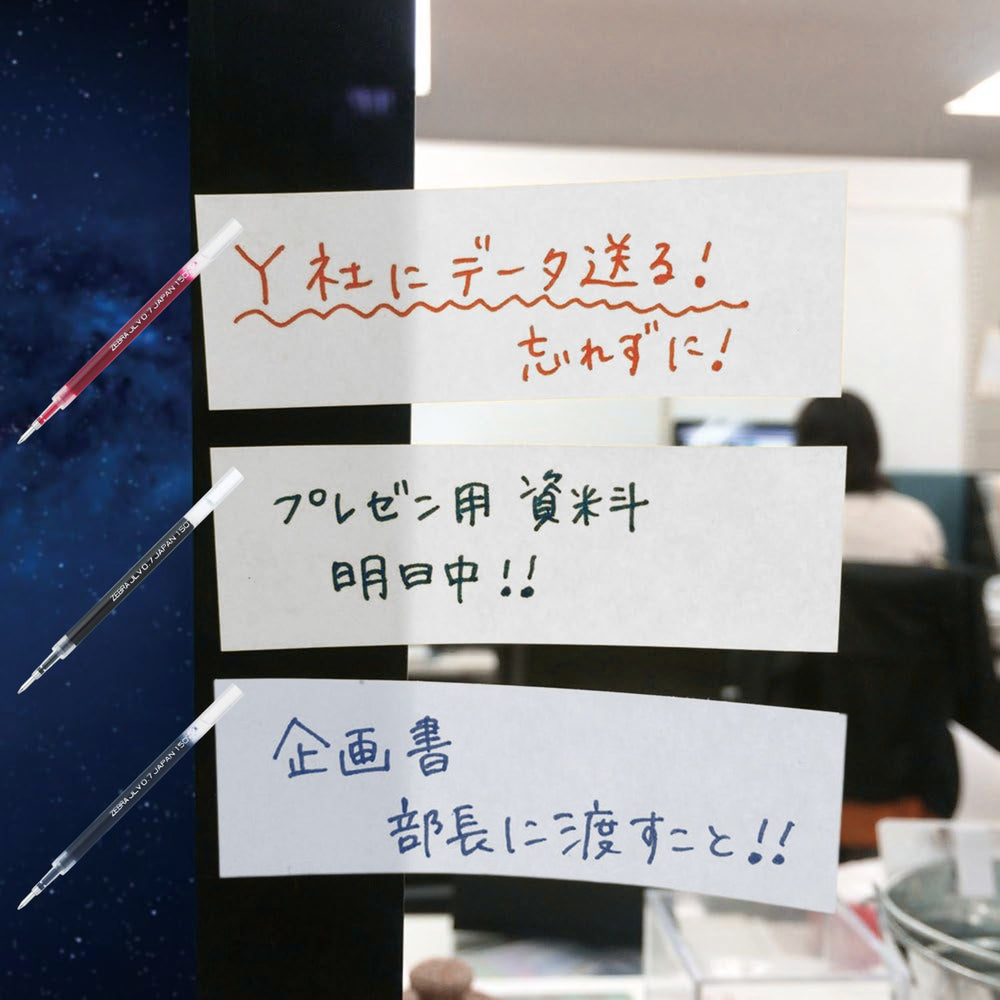 Y社にデータ送る!
忘れずに!
ZEBRA JLV 0.7 JAPAN 150
プレゼン用 資料
明日中!!
ZEBRA JLV 0.7 JAPAN 150
企画書
部長に渡すこと!!
ZEBRA JLV 0.7 JAPAN 150